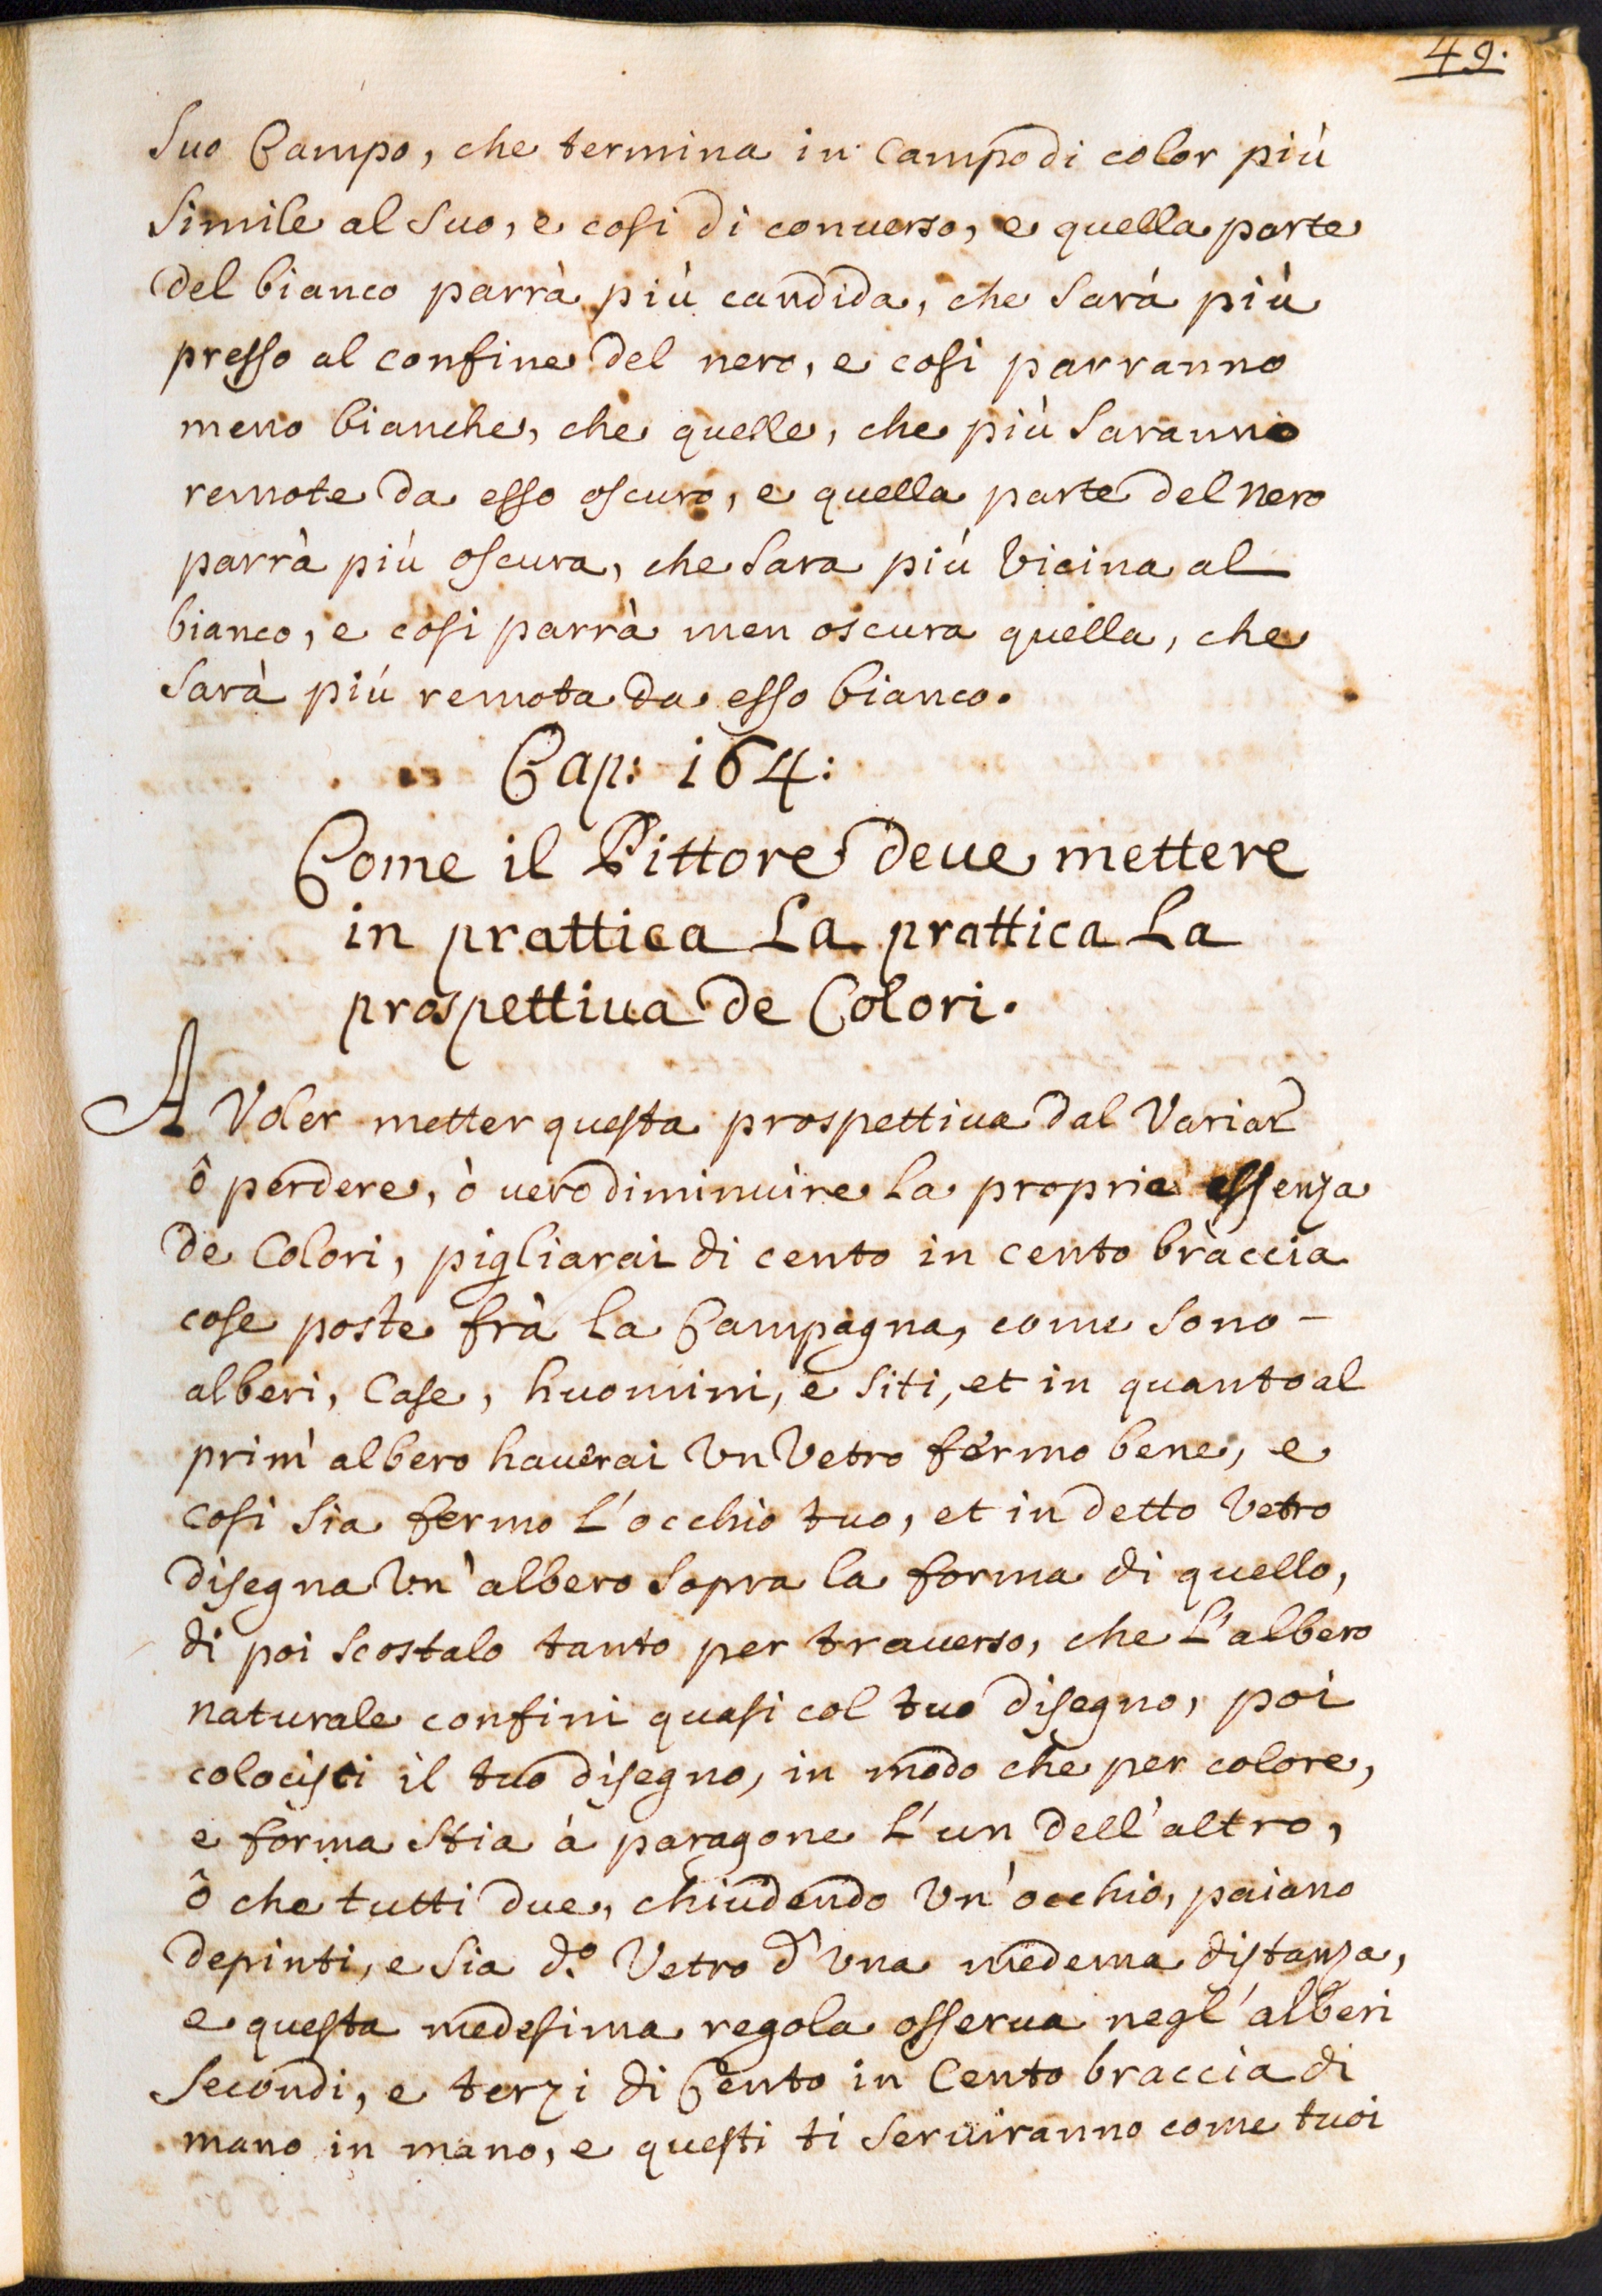 49.
Suo Campo, che termina in campo di color più
Simile al Suo, e cosi di conuerso, e quella parte
del bianco parrà più candida, che Sarà più
presso al confine del nero, e cosi parranno
meno bianche, che quelle, che più Saranno
remote da esso oscuro, e quella parte del nero
parrà più oscura, che Sara più Vicina al
bianco, e cosi parrà men oscura quella, che
Sarà più remota da esso bianco.
Cap: 164:
Come il Pittore deue mettere
in prattica La prattica La
prospettiua de Colori.
A Voler metter questa prospettiua dal Variar
ô perdere, ò uero diminuire la propria essenza
de Colori, pigliarai di cento in cento braccia
cose poste frà la Campagna, come Sono -
alberi, Case, huomini, e Siti, et in quanto al
prim' albero hauerai Vn Vetro fermo bene, e
cosi Sia fermo L'occhio tuo, et in detto Vetro
disegna Vn' albero Sopra la forma di quello,
di poi Scostalo tanto per trauerso, che L'albero
naturale confini quasi col tuo disegno, poi
colocisci il tuo disegno, in modo che per colore,
e forma Stia à paragone L'un dell'altro,
ô che tutti due, chiudendo Vn'occhio, paiano
depinti, e Sia d.º Vetro d'Vna medema distanza,
e questa medesima regola osserua negl'alberi
Secondi, e terzi di Cento in Cento braccia di
mano in mano, e questi ti Seruiranno come tuoi